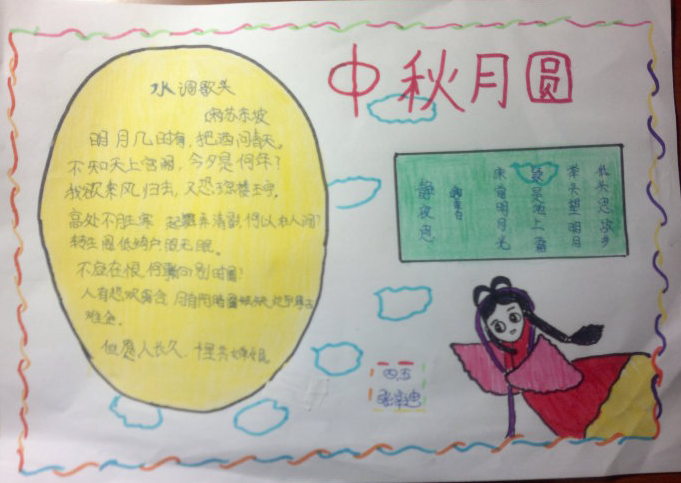 中秋月圆
水调歌头
苏东坡
明月几时有,把酒问青天。
不知天上宫阙,今夕是何年?
我欲乘风归去,又恐琼楼玉宇,
高处不胜寒 起舞弄清影,何以在人间?
转朱阁低绮户照无眠。
不应有恨,何事向别时圆?
人有悲欢离合,月有阴晴圆缺,此事古
难全。
但愿人长久,千里共婵娟
静夜思
李白
床前明月光
疑是地上霜
举头望明月
低头思故乡
四五